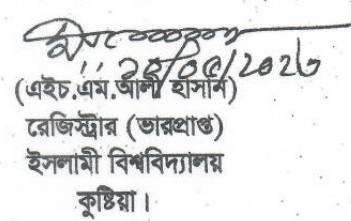 (এইচ.এম.আলী হাসান)
রেজিস্ট্রার (ভারপ্রাপ্ত)
ইসলামী বিশ্ববিদ্যালয়
কুষ্টিয়া।